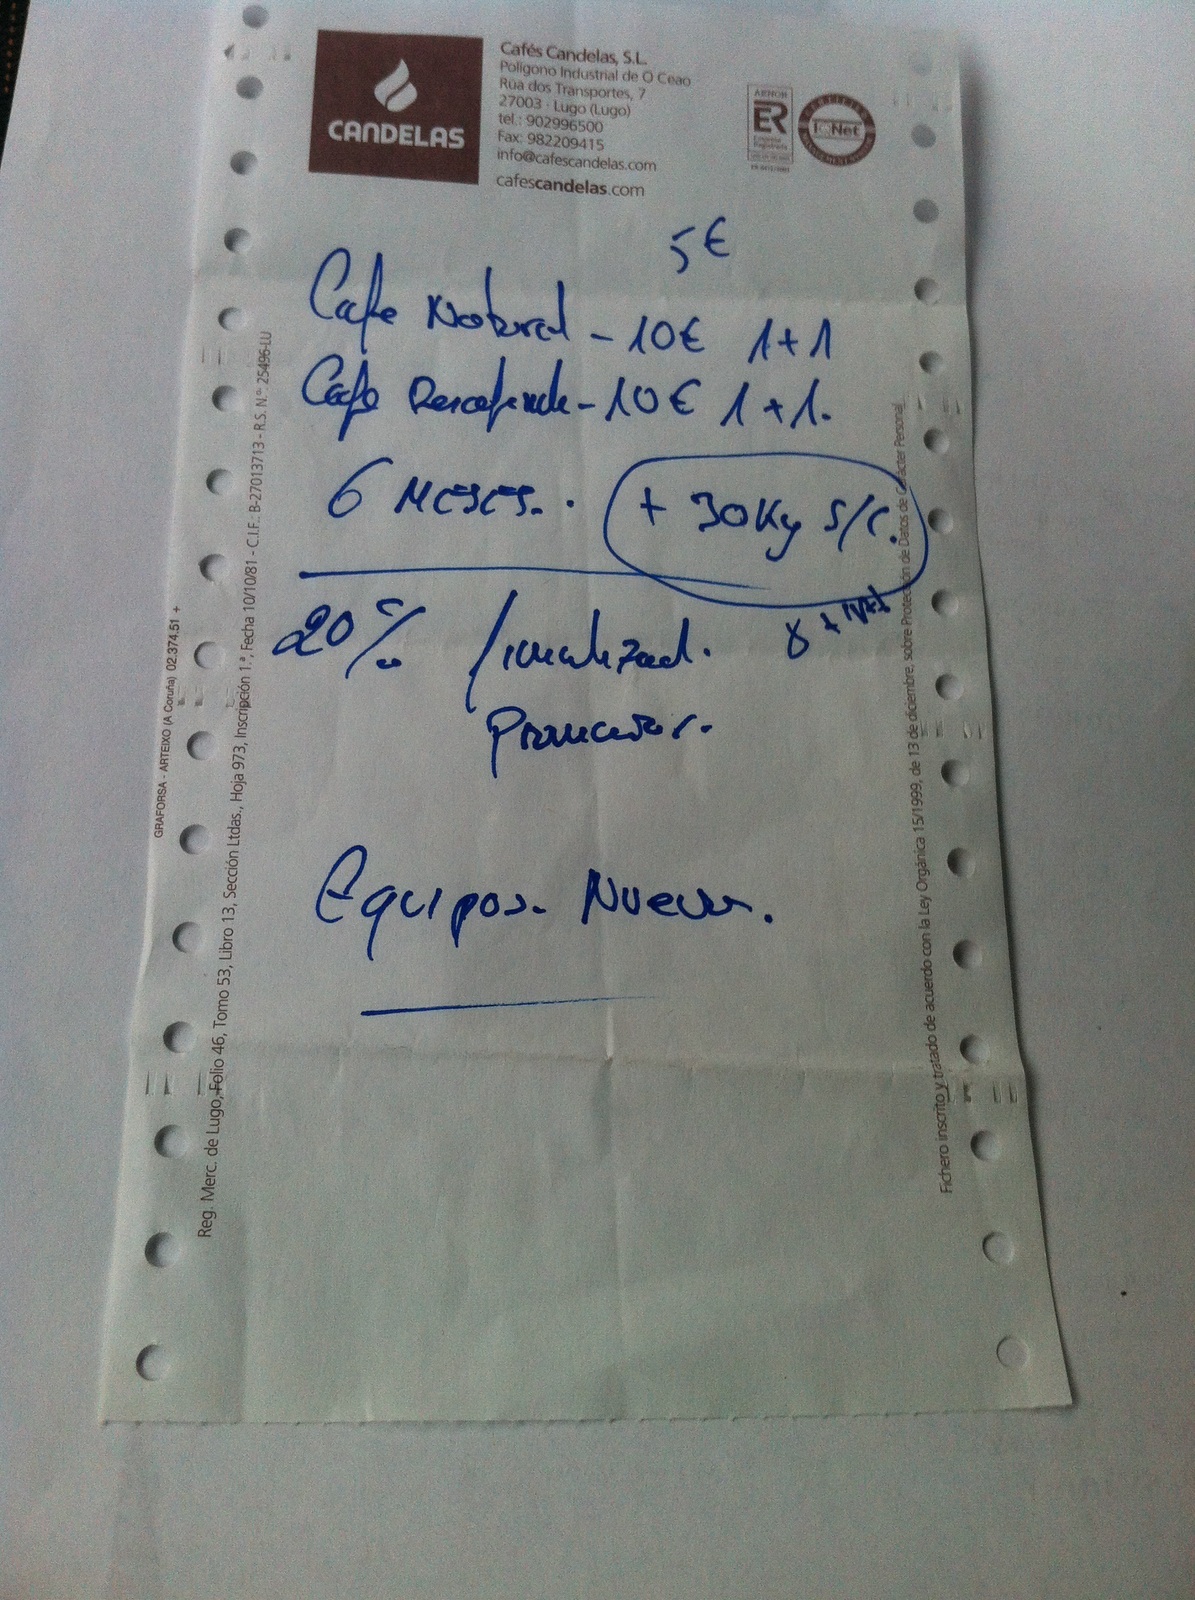 CANDELAS
Cafés Candelas, S.L.
Polígono Industrial de O Ceao
Rúa dos Transportes, 7
27003 · Lugo (Lugo)
tel.: 902996500
Fax: 982209415
info@cafescandelas.com
cafescandelas.com
AENOR
ER
Empresa
Registrada
CERTIFIED
IQNet
MANAGEMENT SYSTEM
5€
Cafe Natural - 10€ 1+1
Cafe Descafeinado - 10€ 1+1.
6 MESES. . + 30Kg S/C.
20% finalizad. 8 + IVA
Promocion.
Equipos. Nuevos.
GRAFORSA - ARTEIXO (A Coruña) 02.374.51 +
Reg. Merc. de Lugo, Folio 46, Tomo 53, Libro 13, Sección Ltdas., Hoja 973, Inscripción 1.ª, Fecha 10/10/81 - C.I.F.: B-27013713 - R.S. N.º 25496-LU
Fichero inscrito y tratado de acuerdo con la Ley Orgánica 15/1999, de 13 de diciembre, sobre Protección de Datos de Carácter Personal